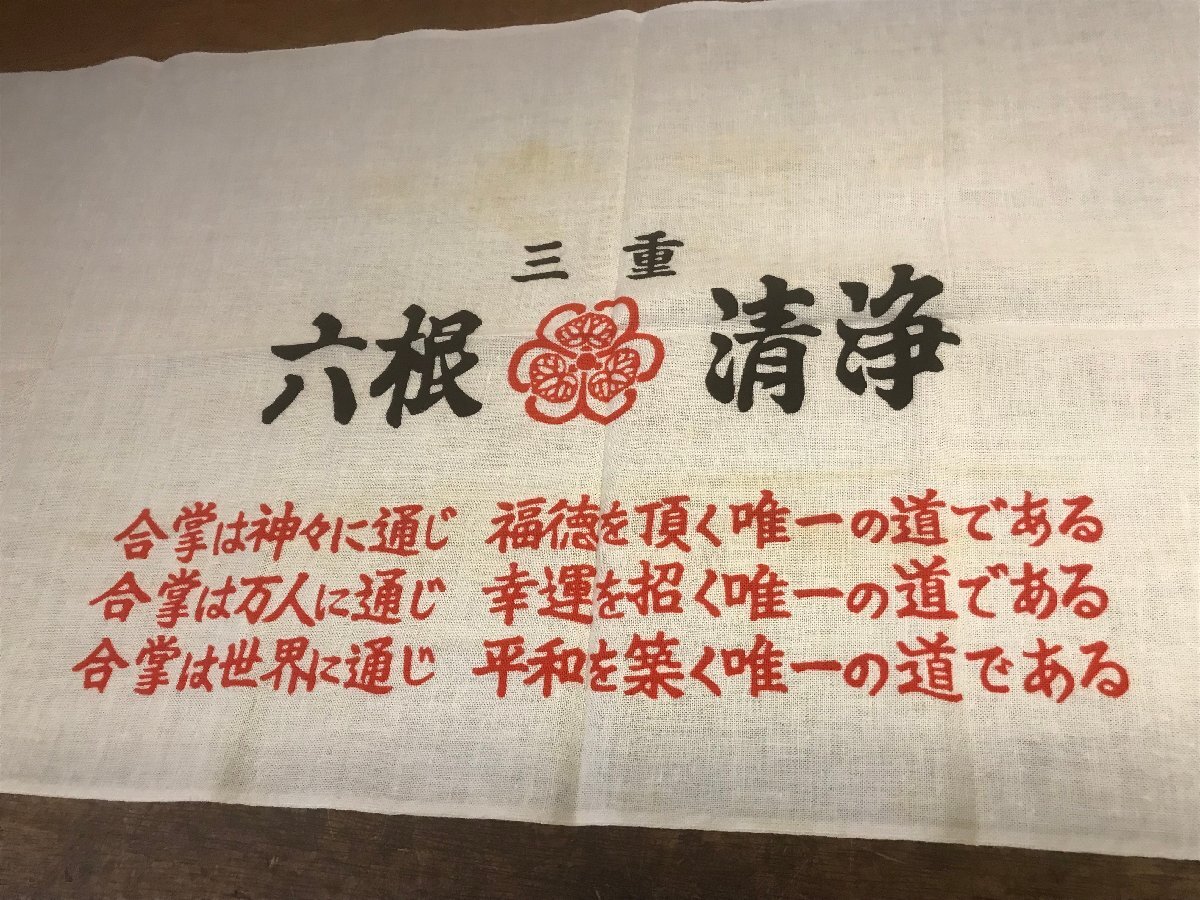 三重
六根清浄
合掌は神々に通じ 福徳を頂く唯一の道である
合掌は万人に通じ 幸運を招く唯一の道である
合掌は世界に通じ 平和を築く唯一の道である